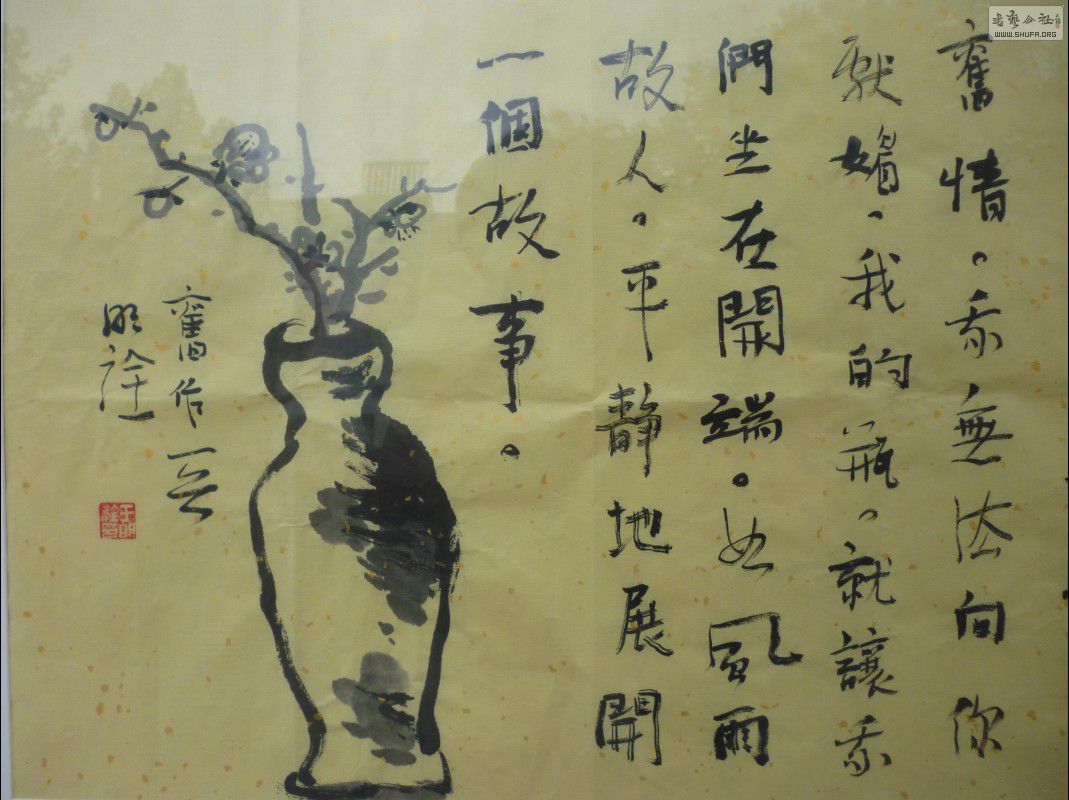 舊情。我無法向你
獻媚、我的瓶。就讓我
們坐在開端。如風雨
故人。平靜地展開
一個故事。
舊作一首
明詮
書藝公社
WWW.SHUFA.ORG